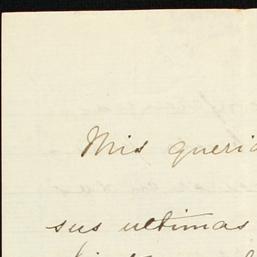 Mis queri
sus ultimas